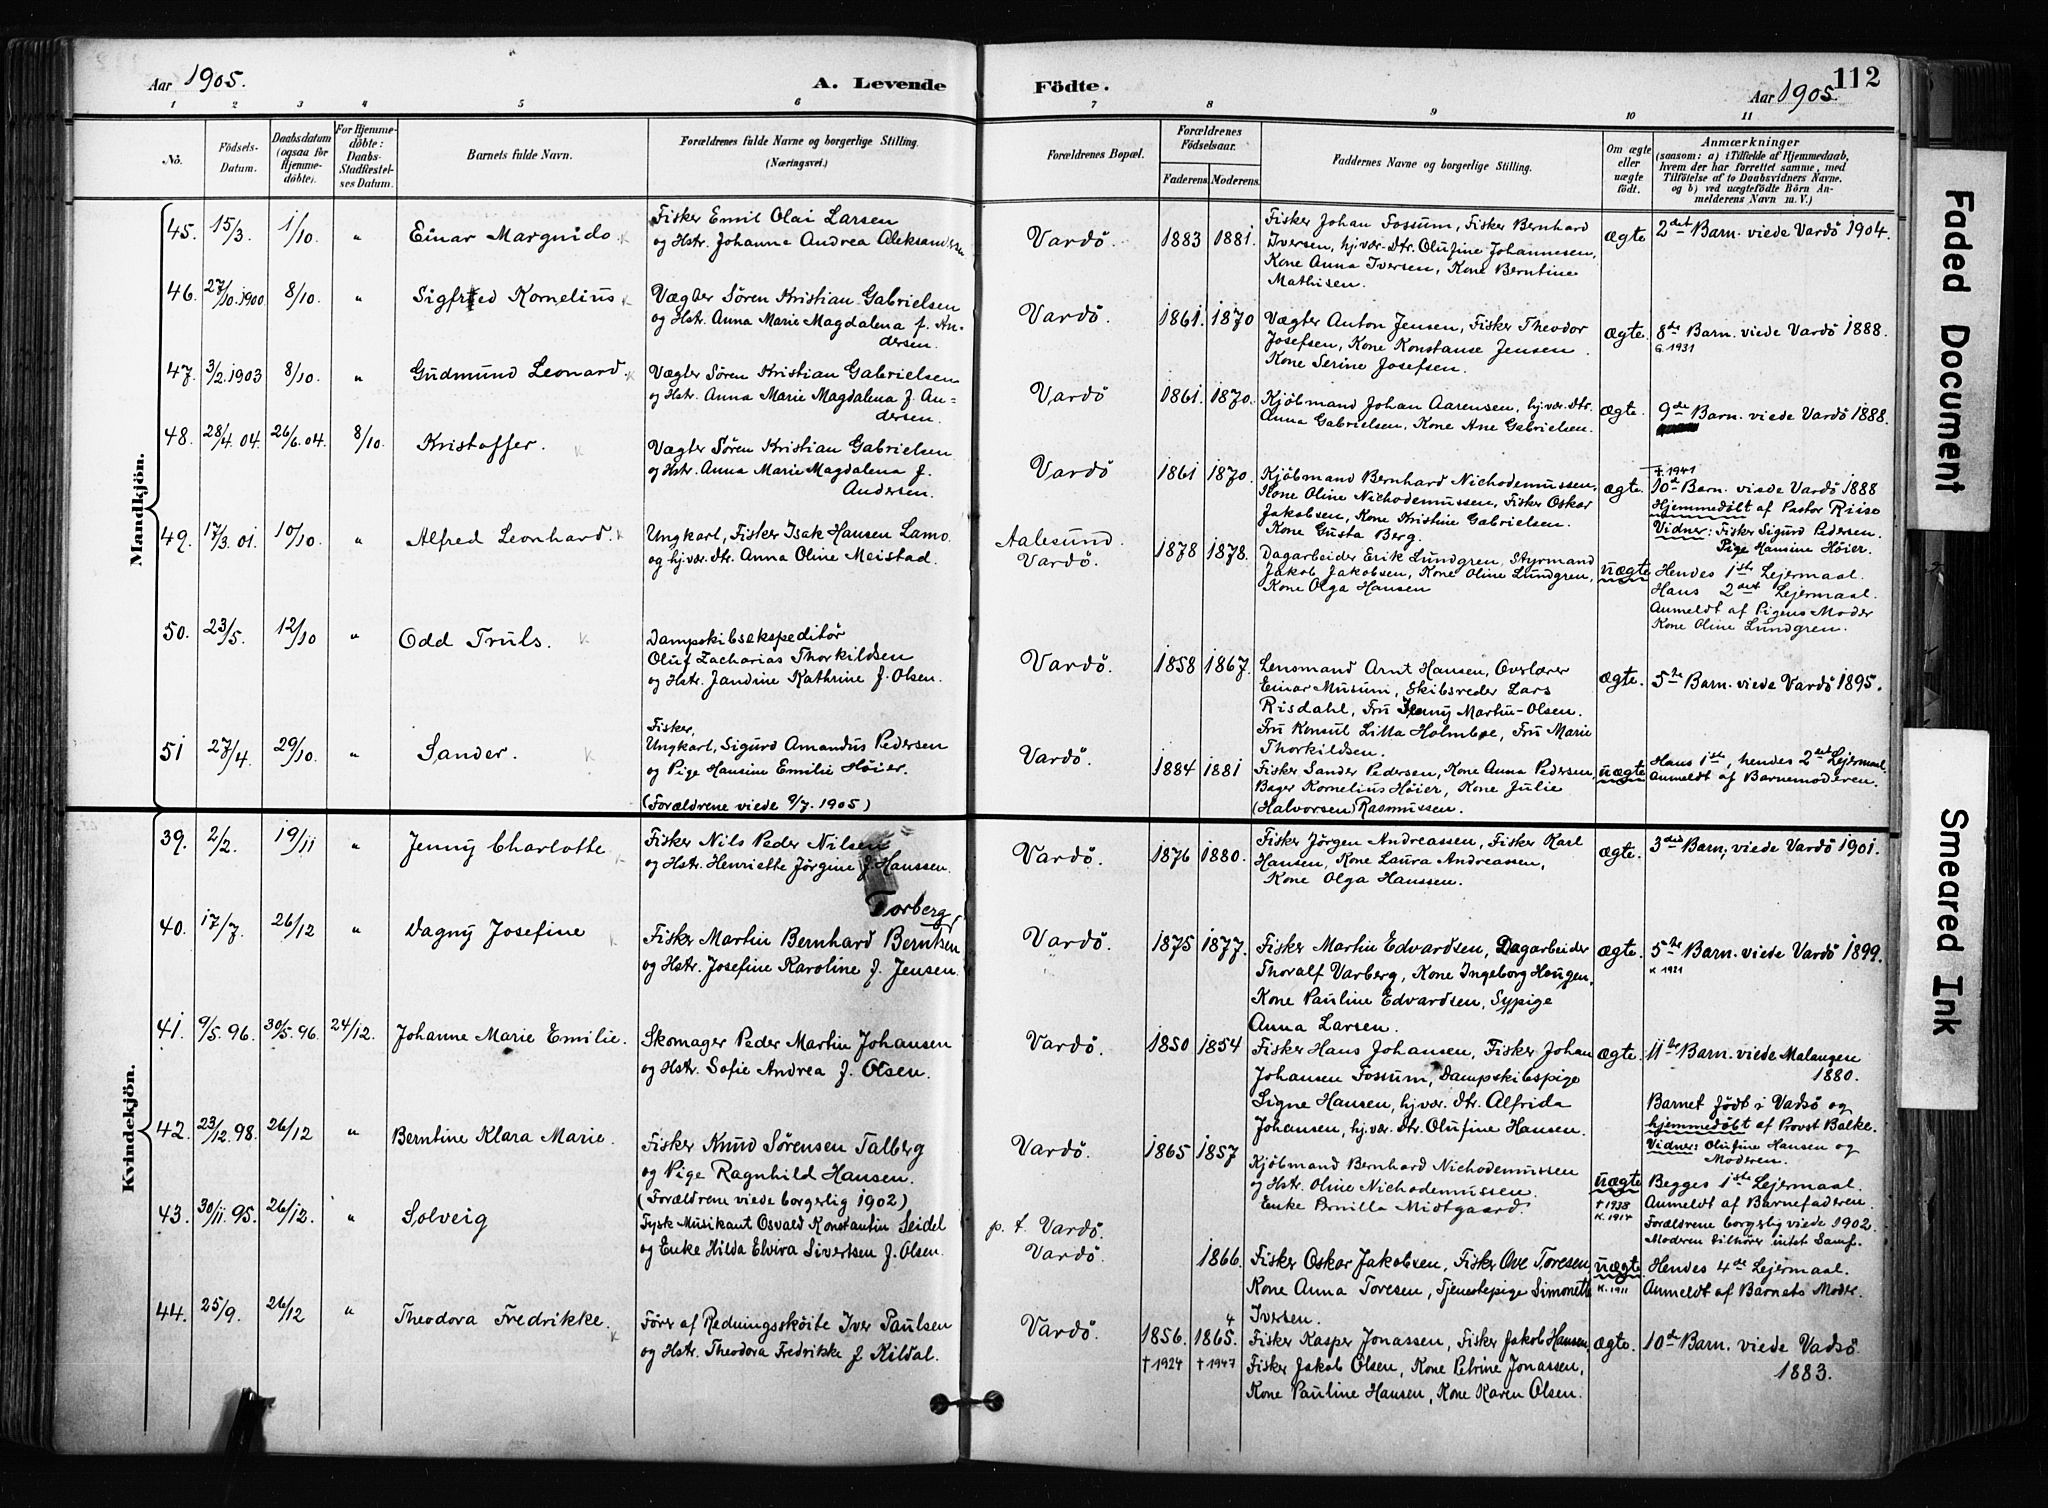 Aar 1905. A. Levende Födte. Aar 1905. 112
1 2 3 4 5 6 7 8 9 10 11
No. Födsels-Datum. Daabsdatum (ogsaa for Hjemme-döbte). For Hjemme-döbte: Daabs-Stadfæstel-ses Datum. Barnets fulde Navn. Forældrenes fulde Navne og borgerlige Stilling. (Næringsvei.) Forældrenes Bopæl. Forældrenes Fødselsaar. Faderens. Moderens. Faddernes Navne og borgerlige Stilling. Om ægte eller uægte födt. Anmærkninger
(saasom: a) i Tilfælde af Hjemmedaab,
hvem der har forrettet samme, med
Tilföielse af to Daabsvidners Navne.
og b) ved uægtefödte Börn An-
melderens Navn m. V.)
Mandkjön.
45. 15/3. 1/10. " Einar Margnido
Fisker Emil Olai Larsen
og Hstr. Johanne Andrea Aleksandersen
Vardö. 1883 1881.
Fisker Johan Fossum, Fisker Bernhard
Iversen, hj.vær. Dtr. Olufine Johannesen,
Kone Anna Iversen, Kone Berntine
Mathisen.
ægte 2det Barn. viede Vardö 1904.
46. 27/10.1900 8/10. " Sigfred Kornelius
Vægter Sören Kristian Gabrielsen
og Hstr. Anna Marie Magdalena f. An-
dersen.
Vardö. 1861. 1870
Vægter Anton Jensen, Fisker Theodor
Josefsen, Kone Konstanse Jensen
Kone Serine Josefsen.
ægte. 8de Barn. viede Vardö 1888.
G. 1931
47. 3/2.1903 8/10. " Gudmund Leonard.
Vægter Sören Kristian Gabrielsen
og Hstr. Anna Marie Magdalena f. An-
dersen.
Vardö 1861. 1870.
Kjöbmand Johan Aarensen, hj.vær. Dtr.
Anna Gabrielsen, Kone Ane Gabrielsen.
ægte. 9de Barn. viede Vardö 1888.
48. 28/4. 04. 26/6. 04. 8/10. Kristoffer.
Vægter Sören Kristian Gabrielsen
og Hstr. Anna Marie Magdalena f.
Andersen.
Vardö 1861 1870.
Kjöbmand Bernhard Nichodemussen,
Kone Oline Nichodemussen, Fisker Oskar
Jakobsen, Kone Kristine Gabrielsen.
Kone Gusta Berg.
ægte.
† 1941
10de Barn. viede Vardö 1888
Hjemmedöbt af Pastor Riise
Vidner: Fisker Sigurd Pedersen.
Pige Hansine Höier.
49. 17/3. 01. 10/10. " Alfred Leonhard.
Ungkarl, Fisker Isak Hansen Lamo.
og hj.vær. Dtr. Anna Oline Meistad.
Aalesund.
Vardö. 1878 1878.
Dagarbeider Erik Lundgren, Styrmand
Jakob Jakobsen, Kone Oline Lundgren,
Kone Olga Hansen
uægte Hendes 1ste Lejermaal.
Hans 2det Lejermaal.
Anmeldt af Pigens Moder
Kone Oline Lundgren.
50. 23/5. 12/10 " Odd Truls.
Dampskibsekspeditör
Oluf Zacharias Thorkildsen
og Hstr. Jandine Kathrine f. Olsen.
Vardö. 1858 1867.
Lensmand Arnt Hansen, Overlærer
Einar Musum, Skibsreder Lars
Risdahl, Fru Jenny Martin-Olsen.
Fru Konsul Litta Holmboe, Fru Marie
Thorkildsen.
ægte. 5te Barn. viede Vardö 1895.
51 27/4. 29/10. " Sander.
Fisker,
Ungkarl, Sigurd Amandus Pedersen
og Pige Hansine Emilie Höier.
(Forældrene viede 9/7. 1905)
Vardö. 1884 1881
Fisker Sander Pedersen, Kone Anna Pedersen,
Bager Kornelius Höier, Kone Julie
(Halvorsen) Rasmussen.
uægte Hans 1ste, hendes 2det Lejermaal.
Anmeldt af Barnemoderen.
Kvindekjön.
39. 2/2. 19/11 " Jenny Charlotte
Fisker Nils Peder Nilsen
og Hstr. Henriette Jörgine f. Hanssen.
Vardö. 1876 1880.
Fisker Jörgen Andreassen, Fisker Karl
Hansen, Kone Laura Andreassen,
Kone Olga Hanssen.
ægte. 3die Barn, viede Vardö 1901.
40. 17/7. 26/12 " Dagny Josefine
Torberg
Fisker Martin Bernhard Berntsen
og Hstr. Josefine Karoline f. Jensen.
Vardö. 1875 1877.
Fisker Martin Edvardsen, Dagarbeider
Thoralf Varberg, Kone Ingeborg Haugen,
Kone Pauline Edvardsen, Sypige
Anna Larsen.
ægte. 5te Barn. viede Vardö 1899.
K 1921
41. 9/5. 96. 30/5. 96 24/12. Johanne Marie Emilie.
Skomager Peder Martin Johansen
og Hstr. Sofie Andrea f. Olsen.
Vardö. 1850 1854
Fisker Hans Johansen, Fisker Johan
Johansen Fossum, Dampskibspige
Signe Hansen, hj.vær. Dtr. Alfrida
Johansen, hj.vær. Dtr. Olufine Hansen.
ægte. 11te Barn. viede Malangen
1880.
Barnet födt i Vadsö og
hjemmedöbt af Provst Balke.
Vidner: Olufine Hansen og
Moderen.
42. 23/12. 98. 26/12 " Berntine Klara Marie.
Fisker Knud Sörensen Talberg
og Pige Ragnhild Hansen.
(Forældrene viede borgerlig 1902)
Vardö. 1865 1857
Kjöbmand Bernhard Nichodemussen
og Hstr. Oline Nichodemussen.
Enke Pernilla Midtgaard
uægte
† 1938
K. 1914
Begges 1ste Lejermaal.
Anmeldt af Barnefaderen.
Forældrene borgerlig viede 1902.
Moderen tilhører intet Samf.
43. 30/11. 95. 26/12. " Solveig
Tysk Musikant Osvald Konstantin Seidel
og Enke Hilda Elvira Sivertsen f. Olsen.
p. t. Vardö.
Vardö. 1866.
Fisker Oskar Jakobsen, Fisker Ove Toresen,
Kone Anna Toresen, Tjenestepige Simonette
Iversen.
uægte
K. 1911
Hendes 4de Lejermaal.
Anmeldt af Barnets Moder.
44. 25/9. 26/12 " Theodora Fredrikke.
Förer af Redningsskøite Iver Paulsen
og Hstr. Theodora Fredrikke f. Kildal.
Vardö. 1856. 1865.
4
† 1924 † 1947
Fisker Kasper Jonassen, Fisker Jakob Hansen,
Fisker Jakob Olsen, Kone Petrine Jonassen,
Kone Pauline Hansen, Kone Karen Olsen.
ægte. 10de Barn. viede Vadsö
1883.
Faded Document
Smeared Ink